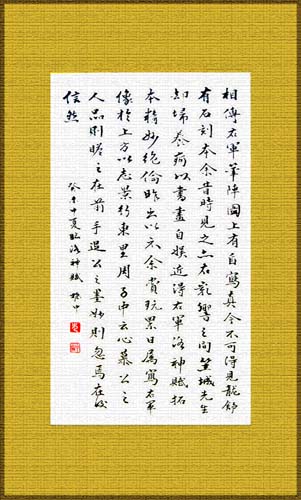 相傳右軍筆陣圖上有自寫真今不可得見龍舒
有石刻本余昔時見之亦在影響之間城先生
知歸養痾以書畫自娛近得右軍洛神賦拓
本精妙絕倫昨出以示余賞玩累日屬寫右軍
像於上方以志景行東里周子中云心慕公之
人品則瞻之在前手追公之墨妙則忽焉在後
信然
癸未夏臨洛神賦